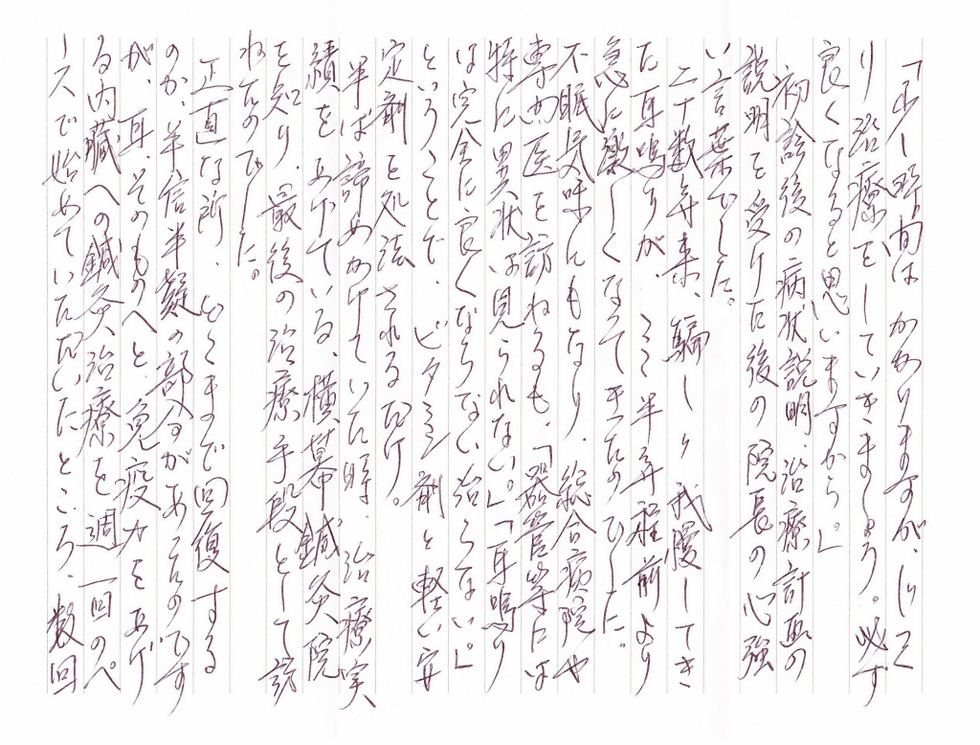 「少し時間はかかりますが、じっく
り治療をしていきましょう。必ず
良くなると思いますから。」
初診後の病状説明、治療計画の
説明を受けた後の院長の心強
い言葉でした。
二十数年来、騙し〱我慢してき
た耳鳴りが、ここ半年程前より
急に激しくなってきたのでした。
不眠気味にもなり、総合病院や
専門医を訪ねるも、「器官等には
特に異状は見られない。」「耳鳴り
は完全に良くならない治らない。」
ということで、ビタミン剤と軽い安
定剤を処法されるだけ。
半ば諦めかけていた時、治療実
績をあげている、横幕鍼灸院
を知り、最後の治療手段として訪
れたのでした。
正直な所、どこまで回復する
のか、半信半疑の部分があったのです
が、耳、そのものへと免疫力をあげ
る内臓への鍼灸治療を週一回のペ
ースで始めていただいたところ、数回